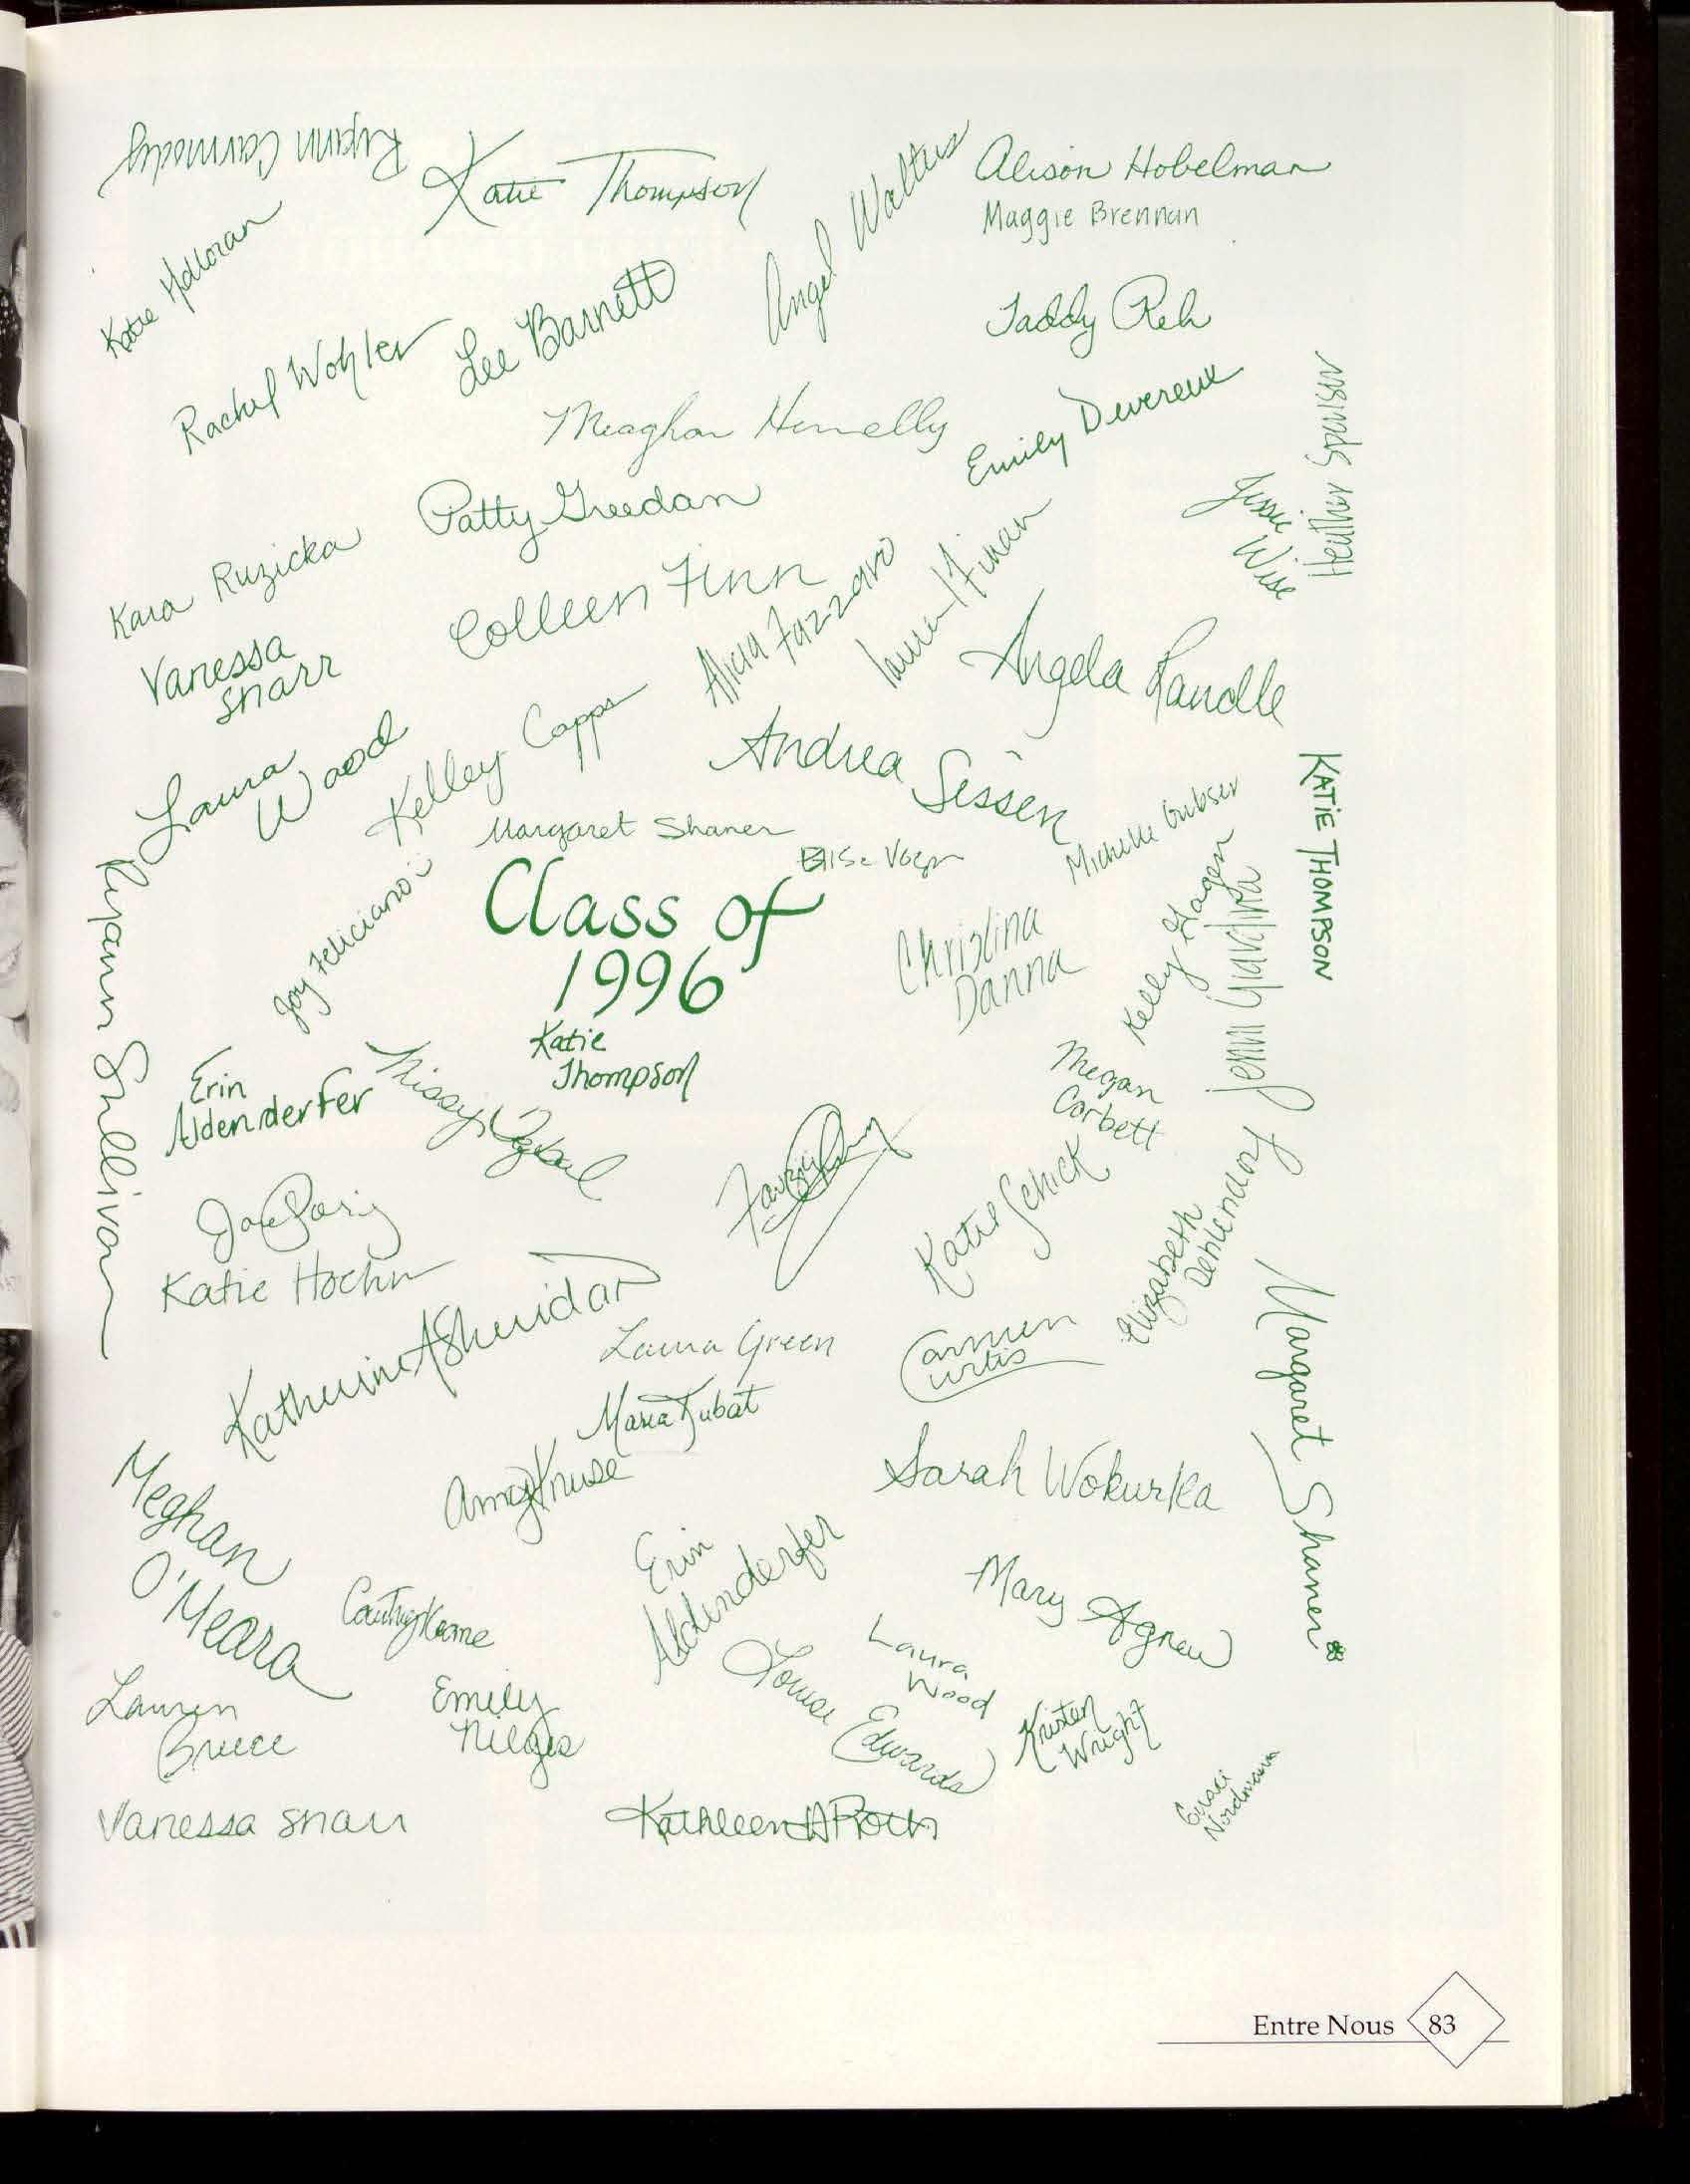 Ryann Carmody
Katie Thompson
Angel Walters
Alison Hobelman
Maggie Brennan
Katie Halloran
Rachel Wohler
Lee Barnett
Taddy Reh
Meaghan Hennelly
Emily Devereux
Heather Spanisen
Jessie
Wise
Patty Greedan
Kara Ruzicka
Colleen Finn
Alicia Fazzaro
Laura Finan
Vanessa
Snarr
Angela Randle
Laura
Wood
Kelley Capps
Andrea Sissen
Katie Thompson
Margaret Shaner
Elise
Michelle Gubser
Class of
1996
Ryann Sullivan
Joy Feliciano :)
Christina
Danna
Kelly Hagen
Jenni Giardina
Katie
Thompson
Erin
Aldenderfer
Missy
Megan
Corbett
Katie Schick
Elizabeth
Dehlendorf
Katie Hoehn
Katherine A Sheridan
Laura Green
Carmen
Curtis
Margaret Shaner
Maria Kubat
Amy Kruse
Sarah Wokurka
Meghan
O'Meara
Erin
Aldenderfer
Mary Agnew
Keane
Laura
Wood
Louise Edwards
Kristen
Wright
Lauren
Bruce
Emily
Nilges
Nordmann
Vanessa Snarr
Kathleen A Roth
Entre Nous 83